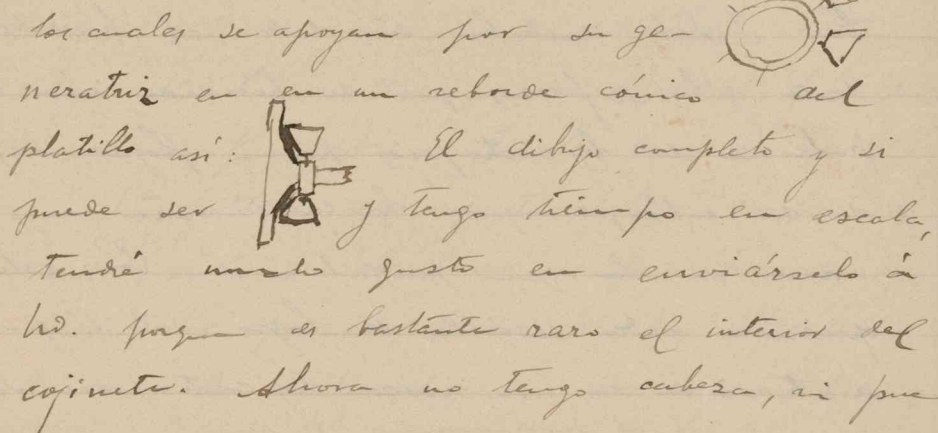 los cuales se apoyan por su ge-
neratriz en en un reborde cónico del
platillo así: El dibujo completo y si
puede ser y tengo tiempo en escala,
tendré mucho gusto en enviárselo á
Vd. porque es bastante raro el interior del
cojinete. Ahora no tengo cabeza, ni pue